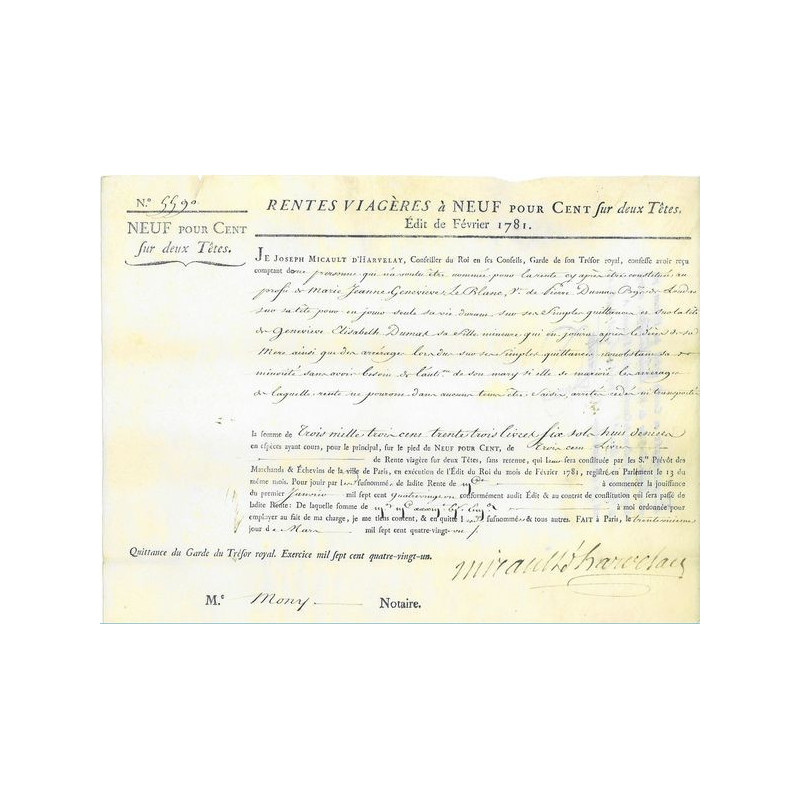 N.º 5590
NEUF POUR CENT
sur deux Têtes.
RENTES VIAGÈRES à NEUF POUR CENT sur deux Têtes.
Édit de Février 1781.
JE JOSEPH MICAULT D'HARVELAY, Conseiller du Roi en ses Conseils, Garde de son Trésor royal, confesse avoir reçu
comptant d'une personne qui n'a voulu être nommée pour la rente cy après être constituée au
profit de Marie Jeanne Geneviève Le Blanc, Ve. de Pierre Dumas Bgs. de Londres
sur sa tête pour en jouir seule sa vie durant sur ses simples quittances et sur la tête
de Geneviève Elisabeth Dumas sa fille mineure qui en jouira après le décès de sa
Mere ainsi que des arrérages lors dus sur ses simples quittances nonobstant sa de
minorité sans avoir besoin de l'autn. de son mary si elle se marioit les arrérages
de laquelle rente ne pourront dans aucun tems être saisis, arretés cédés ni transportés
la somme de Trois mille trois cens trente trois livres six sols huit deniers
en espèces ayant cours, pour le principal, sur le pied de NEUF POUR CENT, de trois cens Livres
de Rente viagère sur deux Têtes, sans retenue, qui leur sera constituée par les S.rs Prévôt des
Marchands & Échevins de la ville de Paris, en exécution de l'Édit du Roi du mois de Février 1781, registré en Parlement le 13 du
même mois. Pour jouir par les susnommés de ladite Rente de à commencer la jouissance
du premier Janvier mil sept cent quatrevingt un conformément audit Édit & au contrat de constitution qui sera passé de
ladite Rente: De laquelle somme de à moi ordonnée pour
employer au fait de ma charge, je me tiens content, & en quitte lesd. susnommés & tous autres. FAIT à Paris, le trenteunieme
jour de Mars mil sept cent quatre-vingt-un
Quittance du Garde du Trésor royal. Exercice mil sept cent quatre-vingt-un.
micault d'harvelay
M.e Mony Notaire.